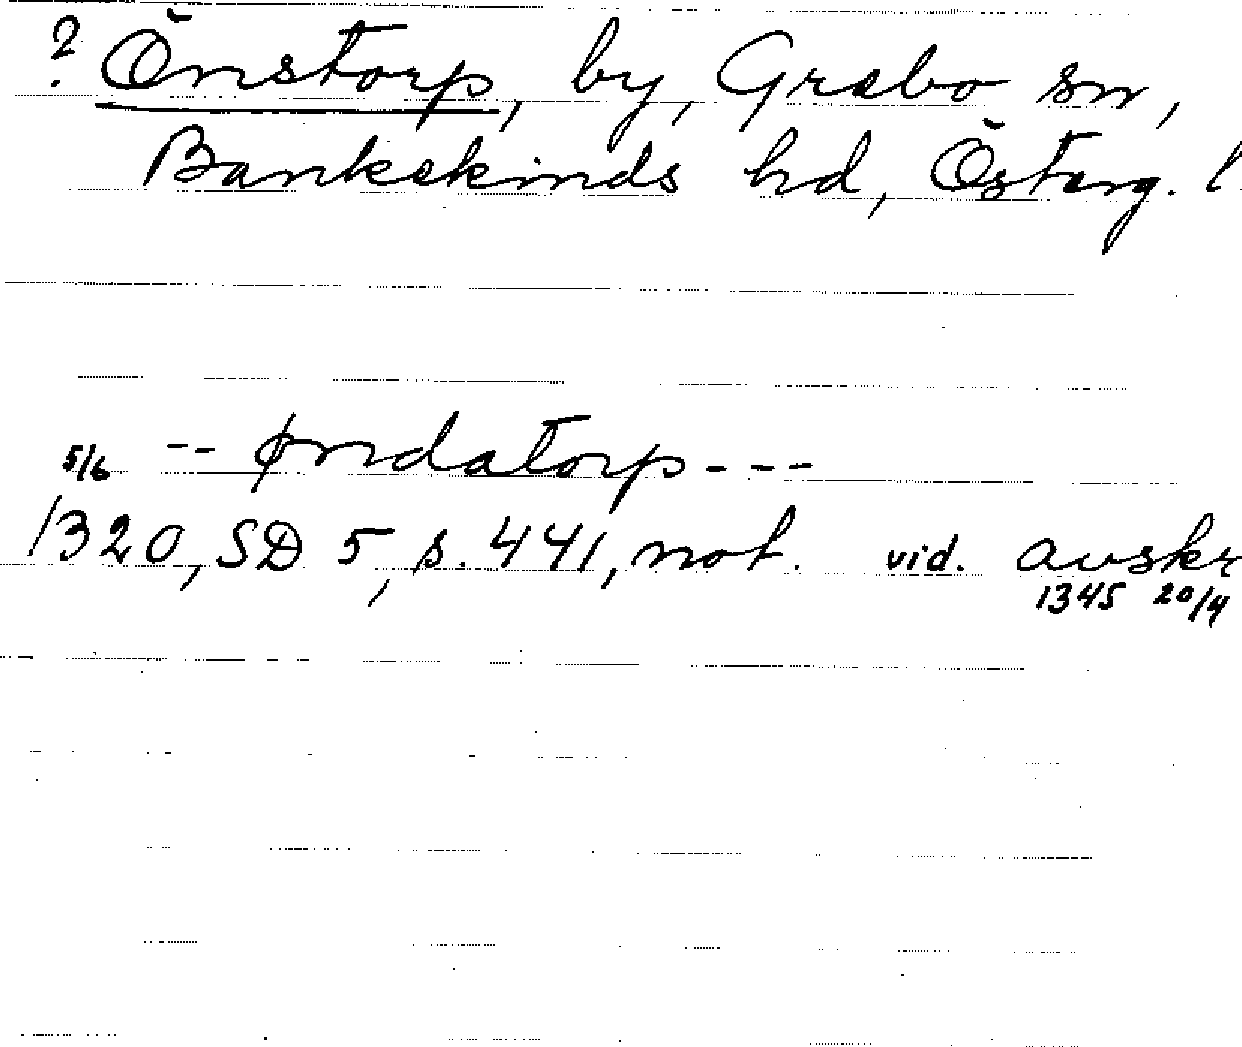 ? Önstorp, by, Grebo sn,
Bankekinds hd, Österg. l
5/6 -- ǿndatorp ---
1320, SD 5, s. 441, not. vid. avskr
1345 20/4